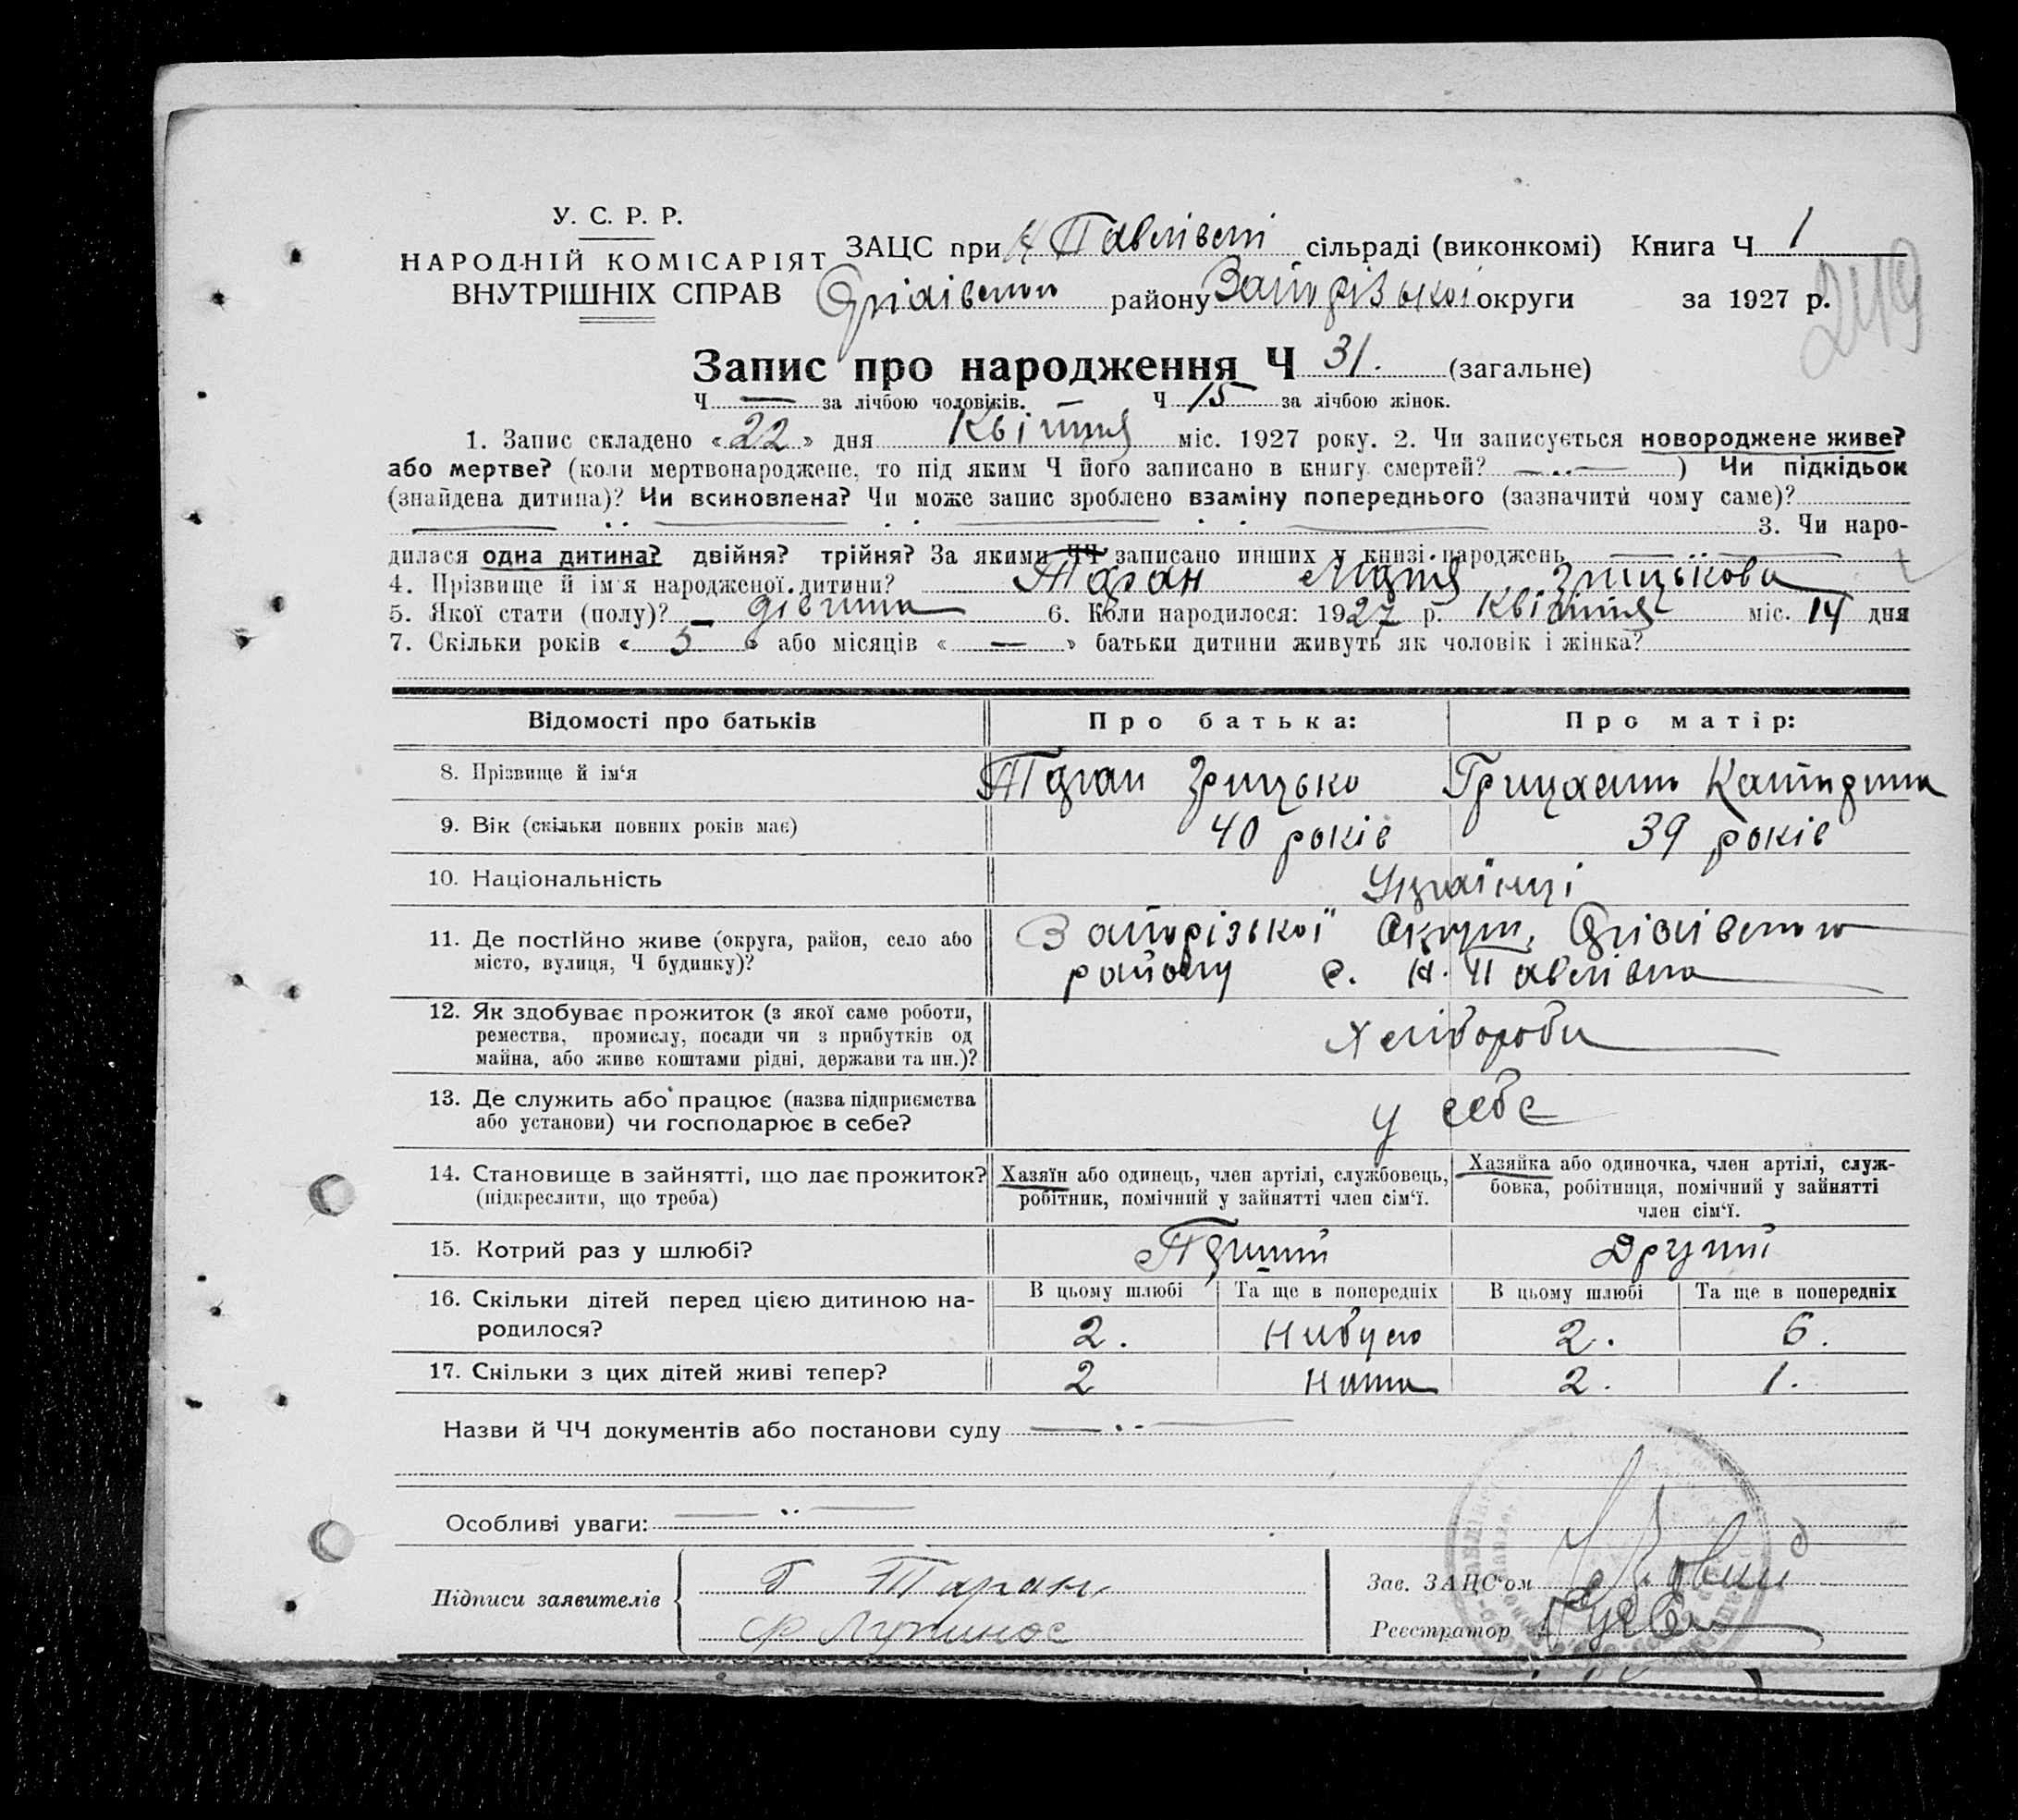 У. С. Р. Р.
НАРОДНІЙ КОМІСАРІЯТ
ВНУТРІШНІХ СПРАВ
ЗАЦС при Н Павлівській сільраді (виконкомі) Книга Ч 1
Оріхівського району Запорізької округи за 1927 р.
249
Запис про народження Ч 31. (загальне)
Ч — за лічбою чоловіків. Ч 15 за лічбою жінок.
1. Запис складено «22» дня Квітня міс. 1927 року. 2. Чи записується новороджене живе?
або мертве? (коли мертвонароджене, то під яким Ч його записано в книгу смертей? —..— ) Чи підкідьок
(знайдена дитина)? Чи всиновлена? Чи може запис зроблено взаміну попереднього (зазначити чому саме)?
3. Чи наро-
дилася одна дитина? двійня? трійня? За якими ЧЧ записано инших у книзі народжень
4. Прізвище й ім'я народженої дитини? Таран Лідія Грицькова
5. Якої стати (полу)? дівчина 6. Коли народилося: 1927 р. Квітня міс. 14 дня
7. Скільки років «5» або місяців «—» батьки дитини живуть як чоловік і жінка?
Відомості про батьків Про батька: Про матір:
8. Прізвище й ім'я Таран Грицько Грицаєнко Катерина
9. Вік (скільки повних років має) 40 років 39 років
10. Національність Українці
11. Де постійно живе (округа, район, село або
місто, вулиця, Ч будинку)?
Запорізької Округи, Оріхівського
району с. Н. Павлівка
12. Як здобуває прожиток (з якої саме роботи,
ремества, промислу, посади чи з прибутків од
майна, або живе коштами рідні, держави та ин.)?
Хлібороби
13. Де служить або працює (назва підприємства
або установи) чи господарює в себе?
у себе
14. Становище в зайнятті, що дає прожиток?
(підкреслити, що треба)
Хазяїн або одинець, член артілі, службовець,
робітник, помічний у зайнятті член сім'ї.
Хазяйка або одиночка, член артілі, служ-
бовка, робітниця, помічний у зайнятті
член сім'ї.
15. Котрий раз у шлюбі? Перший Другий
16. Скільки дітей перед цією дитиною на-
родилося?
В цьому шлюбі Та ще в попередніх В цьому шлюбі Та ще в попередніх
2. Нибуло 2. 6.
17. Скільки з цих дітей живі тепер? 2 Нима 2. 1.
Назви й ЧЧ документів або постанови суду —..—
Особливі уваги: —..—
Підписи заявителів
Г Таран
Ф Лутинос
Зав. ЗАЦС'ом
Реєстратор